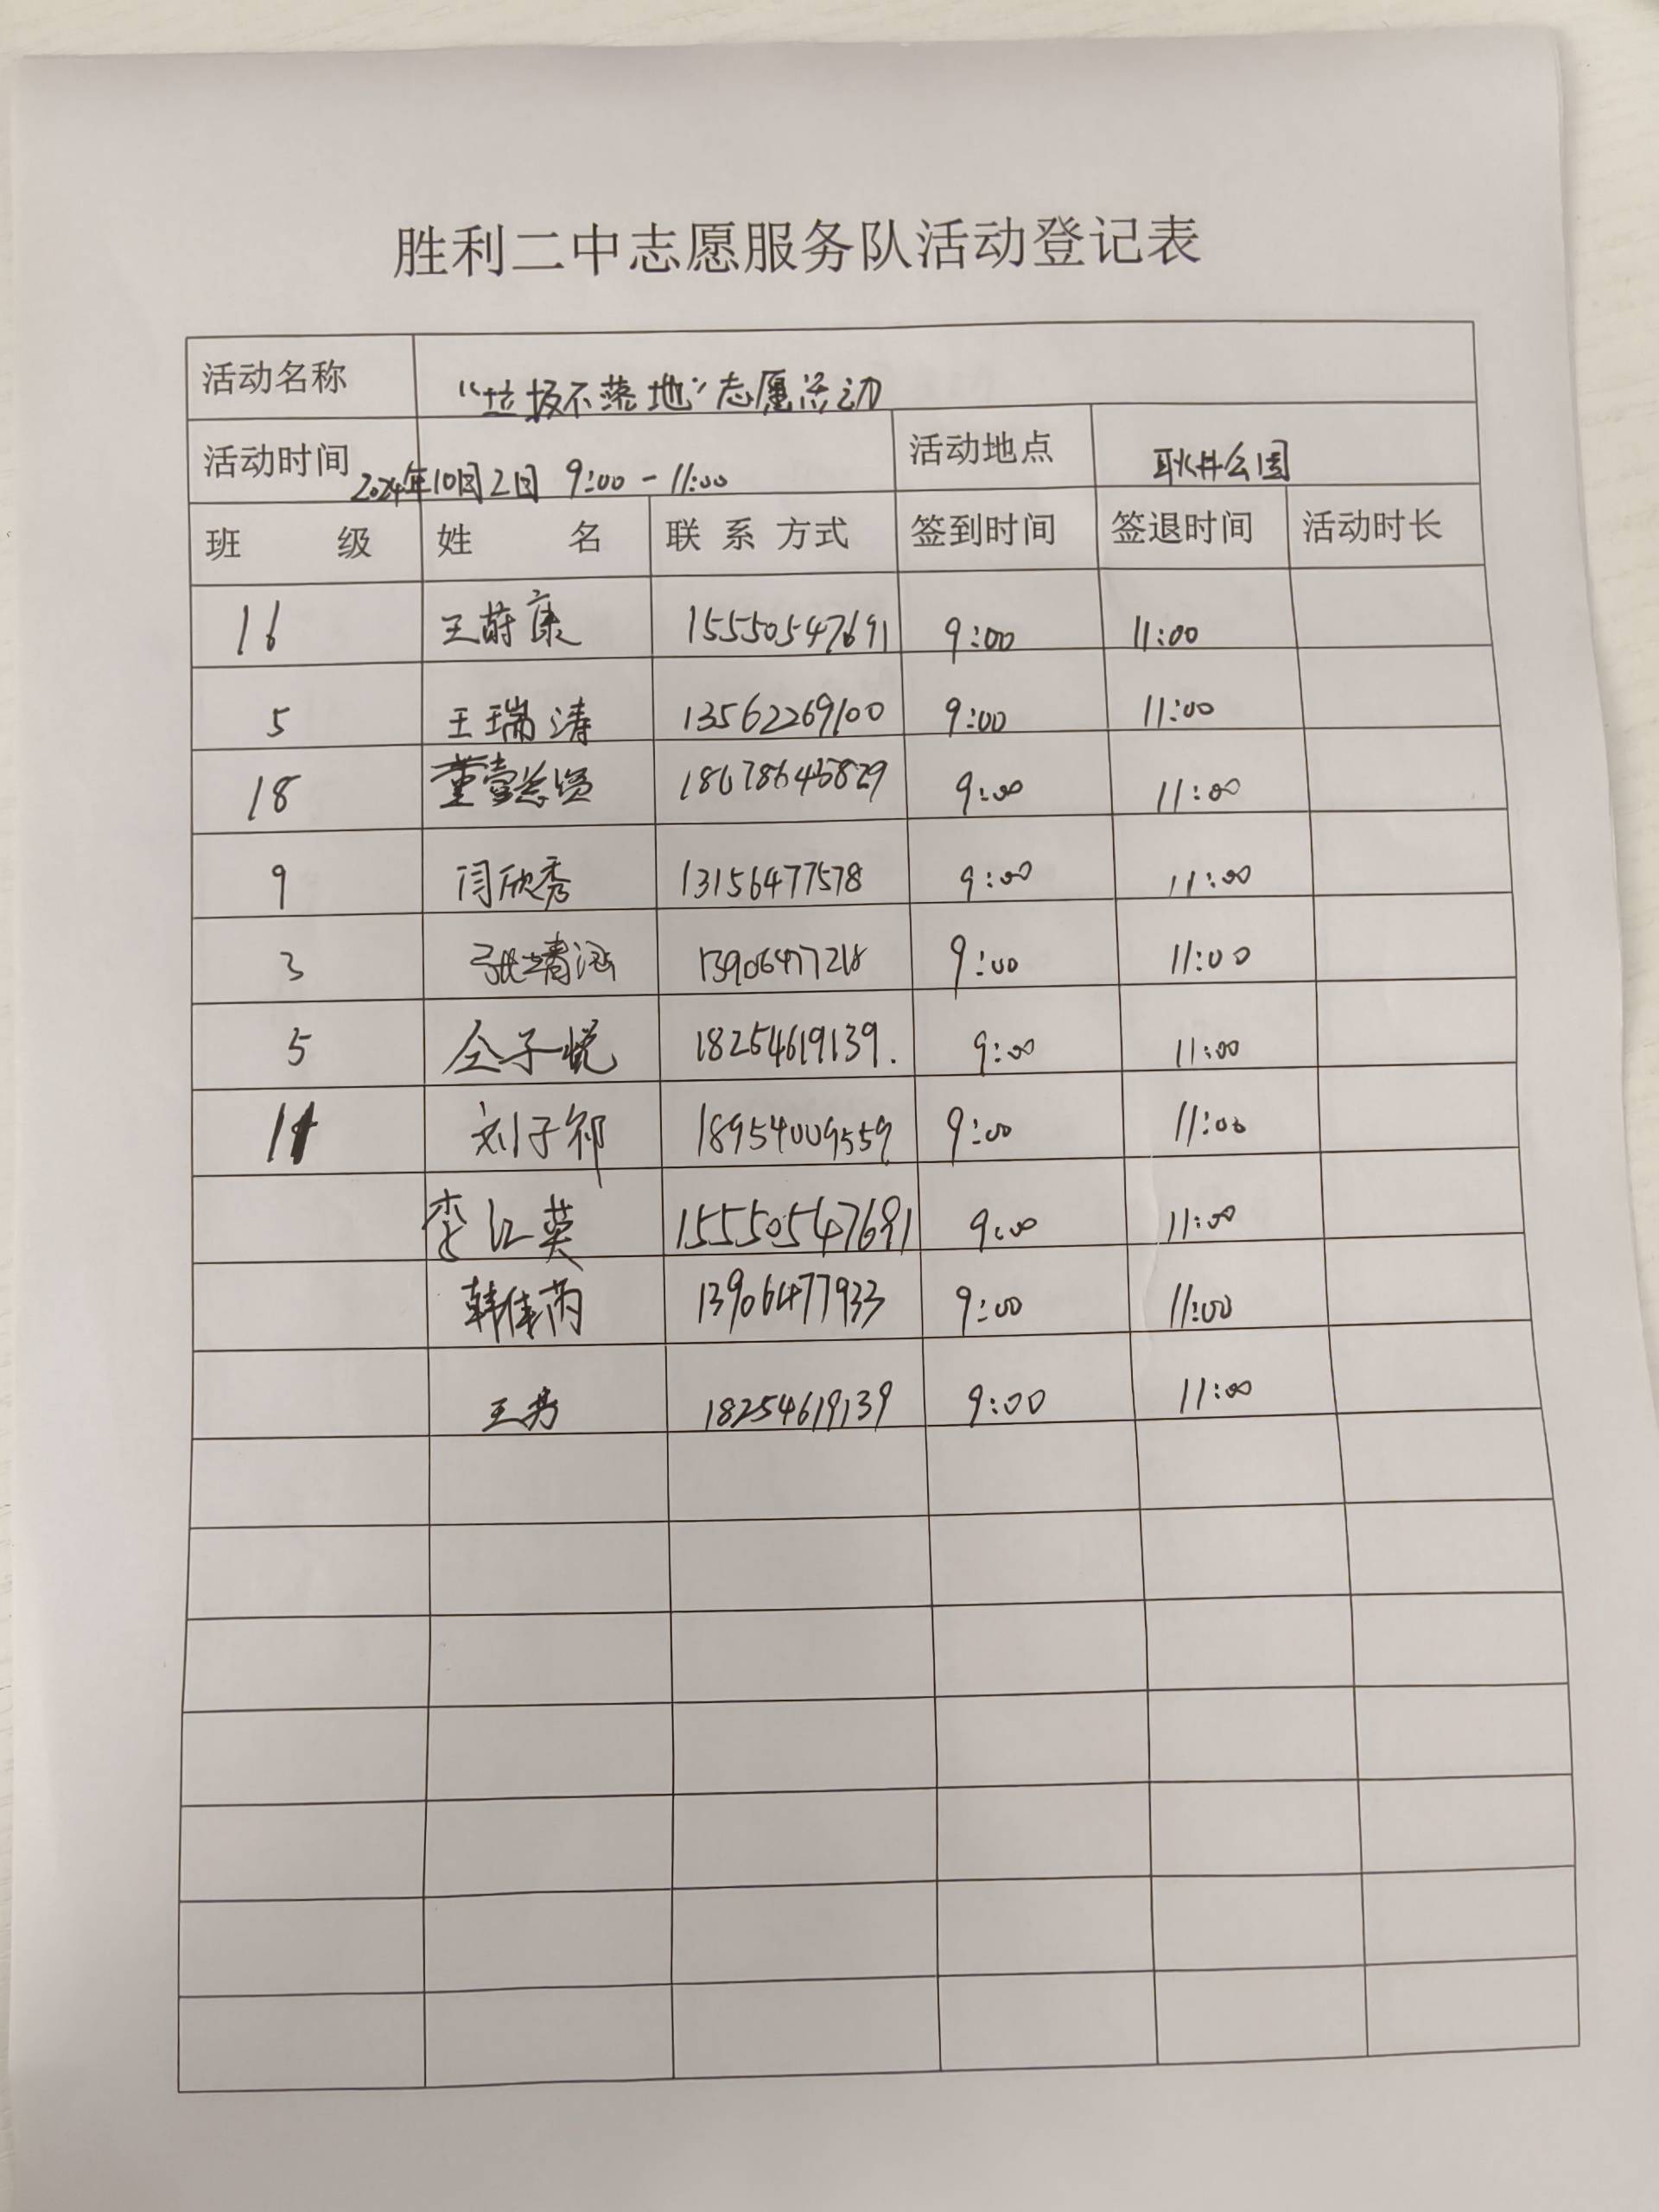 胜利二中志愿服务队活动登记表
活动名称 “垃圾不落地”志愿活动
活动时间 2024年10月2日 9:00-11:00 活动地点 耿井公园
班 级 姓 名 联系方式 签到时间 签退时间 活动时长
16 王蔚康 15550547691 9:00 11:00
5 王瑞涛 13562269100 9:00 11:00
18 董 9:00 11:00
9 闫欣秀 13156477578 9:00 11:00
3 张靖 9:00 11:00
5 仝子悦 18254619139. 9:00 11:00
刘子祁 18954009559 9:00 11:00
李红英 15550547691 9:00 11:00
韩佳芮 13906477933 9:00 11:00
王芳 18254619139 9:00 11:00